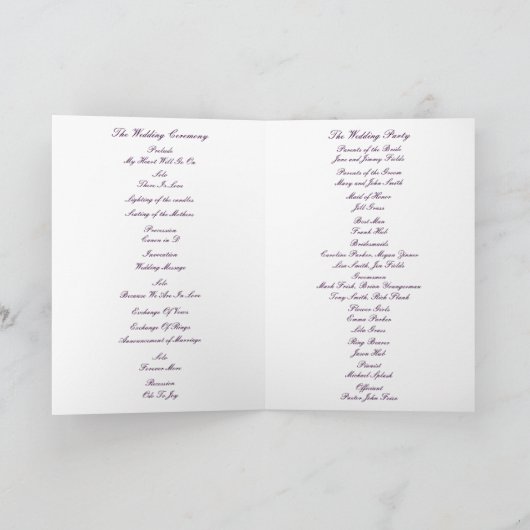 The Wedding Ceremony
Prelude
My Heart Will Go On
Solo
There Is Love
Lighting of the candles
Seating of the Mothers
Procession
Canon in D
Invocation
Wedding Message
Solo
Because We Are In Love
Exchange Of Vows
Exchange Of Rings
Announcement of Marriage
Solo
Forever More
Recession
Ode To Joy
The Wedding Party
Parents of the Bride
Jane and Jimmy Fields
Parents of the Groom
Mary and John Smith
Maid of Honor
Jill Grass
Best Man
Frank Hub
Bridesmaids
Caroline Parker, Megan
Lisa Smith, Jen Fields
Groomsmen
Mark Frish, Brian Youngerman
Tony Smith, Rich Plank
Flower Girls
Emma Parker
Lila Grass
Ring Bearer
Jason Hub
Pianist
Michael Splash
Officiant
Pastor John Frier